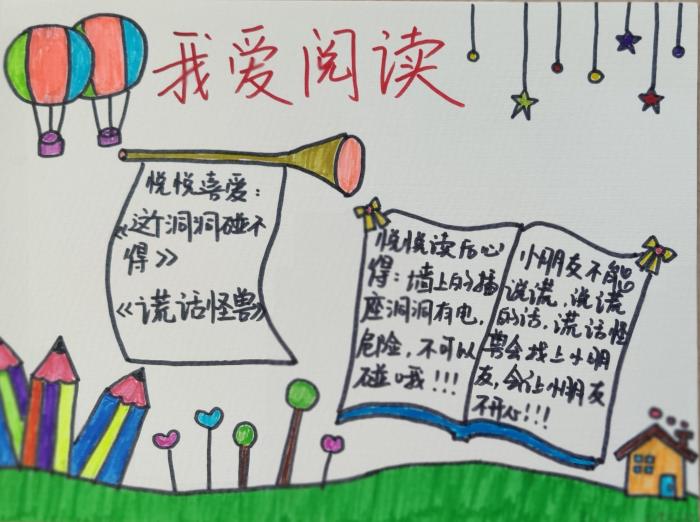 我爱阅读
悦悦喜爱：
《这个洞洞碰不
得》
《谎话怪兽》
悦悦读后心
得：墙上的插
座洞洞有电，
危险，不可以
碰哦！！！
小朋友不能
说谎，说谎
的话，谎话怪
兽会找上小朋
友，会让小朋友
不开心！！！